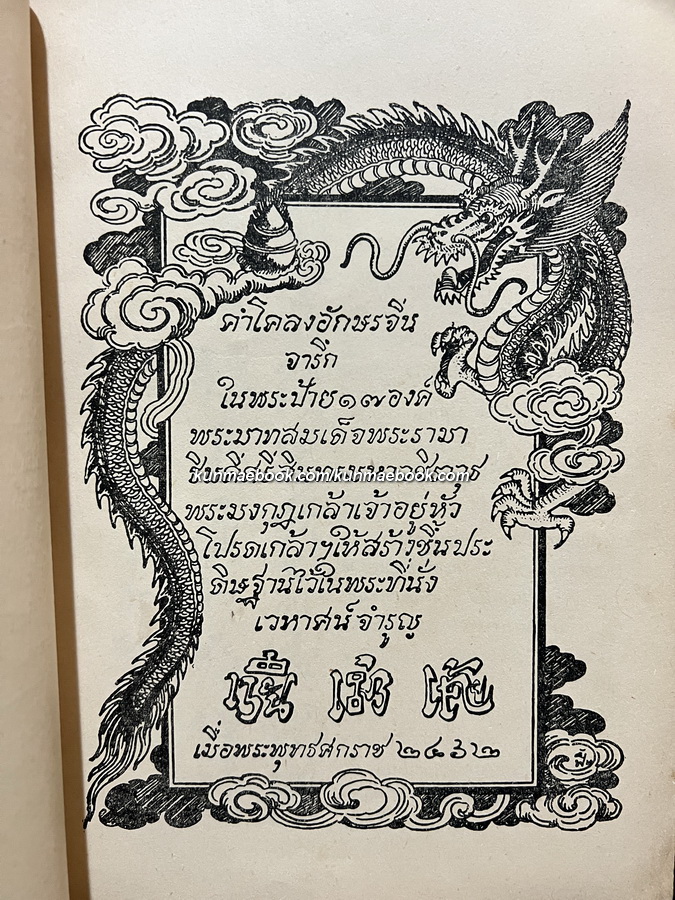 คำโคลงอักษรจีน
จารึก
ในพระป้าย๑๗องค์
พระบาทสมเด็จพระรามา
kunmaebook.com/kunmaebook.com
พระมงกุฎเกล้าเจ้าอยู่หัว
โปรดเกล้าฯให้สร้างขึ้นประ
ดิษฐานไว้ในพระที่นั่ง
เวหาศน์จำรูญ
เมื่อพระพุทธศกราช ๒๔๖๒